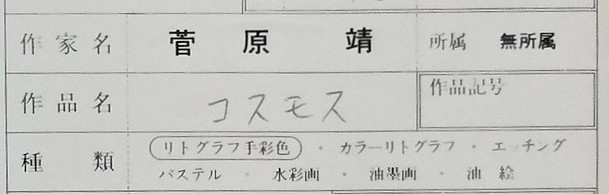 作家名 菅原 靖 所属 無所属
作品名 コスモス 作品記号
種類 リトグラフ手彩色 ・ カラーリトグラフ ・ エッチング
パステル ・ 水彩画 ・ 油墨画 ・ 油絵